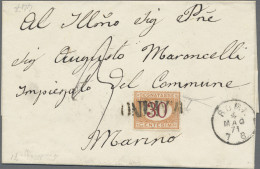 Al Illmo Sig Pñe
Sig Augusto Maroncelli
Impiegato del Commune
Marino
30
CENTESIMI
ROMA
4
MAG
71